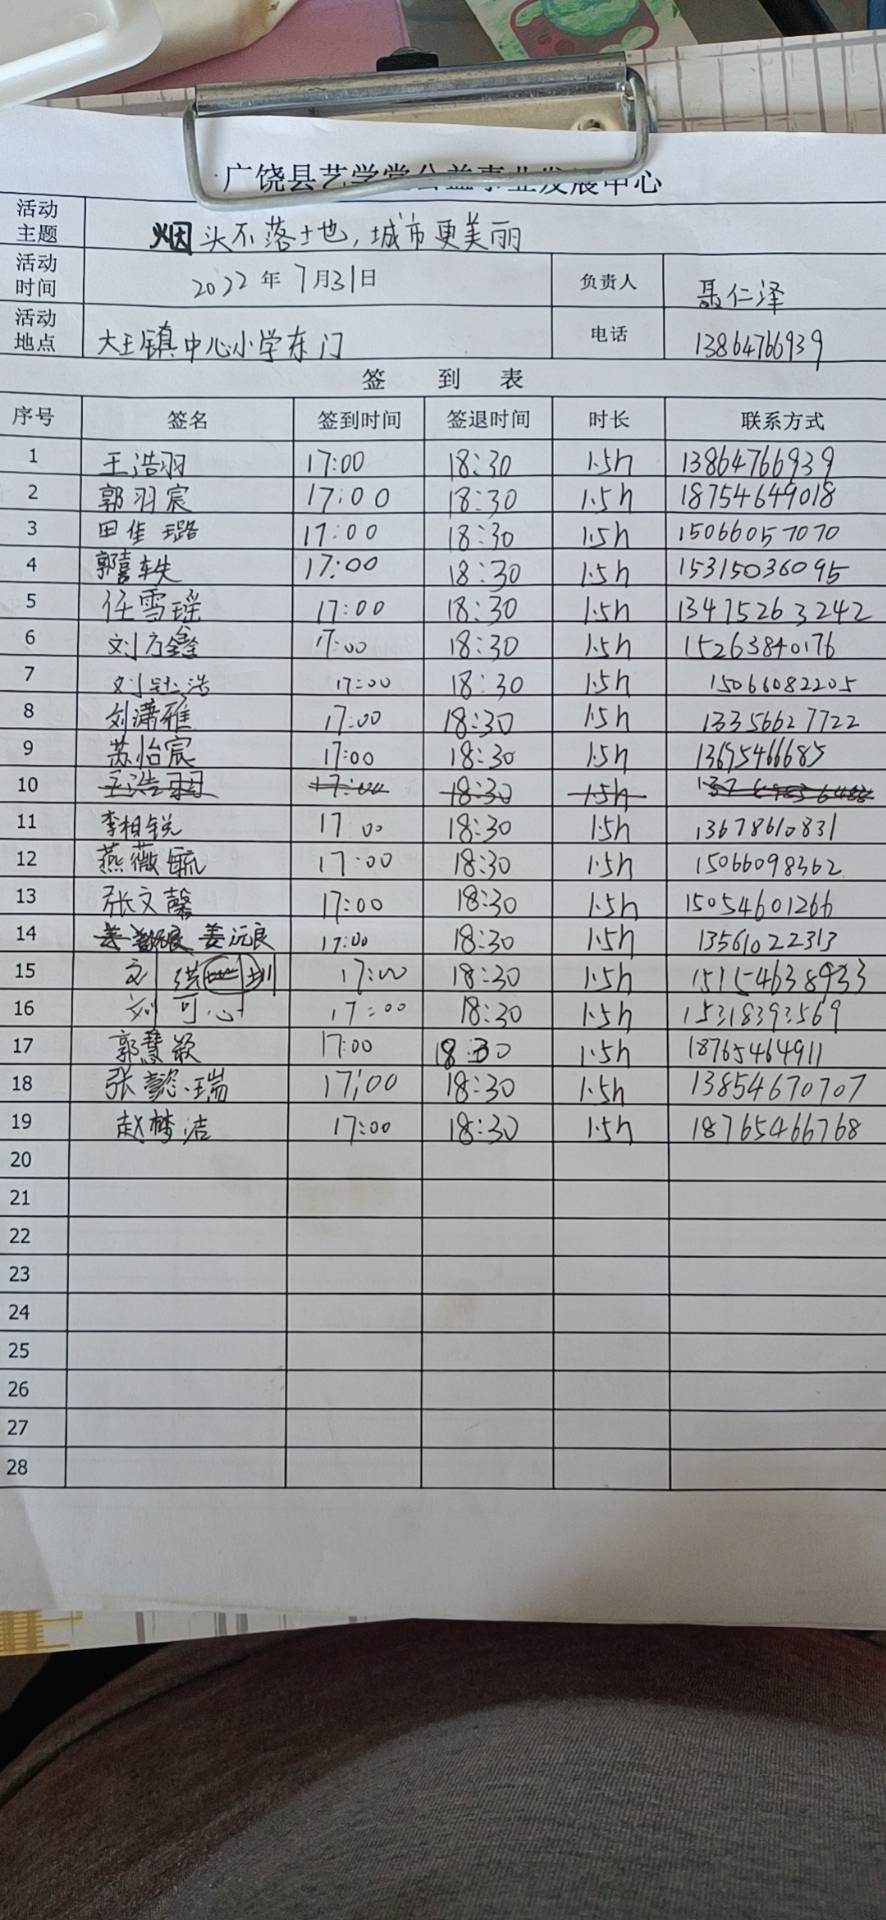 广饶县艺学堂公益事业发展中心
活动主题 烟头不落土地,城市更美丽
活动时间 2022年7月31日 负责人 聂仁泽
活动地点 大王镇中心小学东门 电话 13864766939
签 到 表
序号 签名 签到时间 签退时间 时长 联系方式
1 王浩羽 17:00 18:30 1.5h 13864766939
2 郭羽宸 17:00 18:30 1.5h 18754649018
3 田佳璐 17:00 18:30 1.5h 15066057070
4 郭喜轶 17:00 18:30 1.5h 15315036095
5 任雪瑶 17:00 18:30 1.5h 13475263242
6 刘方鑫 17:00 18:30 1.5h 15263840176
7 刘钰浩 17:00 18:30 1.5h 15066082205
8 刘潇雅 17:00 18:30 1.5h 13356627722
9 苏怡宸 17:00 18:30 1.5h 13695466685
10 王浩羽 17:00 18:30 1.5h
11 李相锐 17 00 18:30 1.5h 13678610831
12 燕薇毓 17:00 18:30 1.5h 15066098362
13 张文馨 17:00 18:30 1.5h 15054601266
14 姜沅良 17:00 18:30 1.5h 13561022313
15 17:00 18:30 1.5h 15154638933
16 刘可心 17:00 18:30 1.5h 15318393569
17 郭慧敏 17:00 18:30 1.5h 18765464911
18 张懿瑞 17:00 18:30 1.5h 13854670707
19 赵梦洁 17:00 18:30 1.5h 18765466768
20
21
22
23
24
25
26
27
28